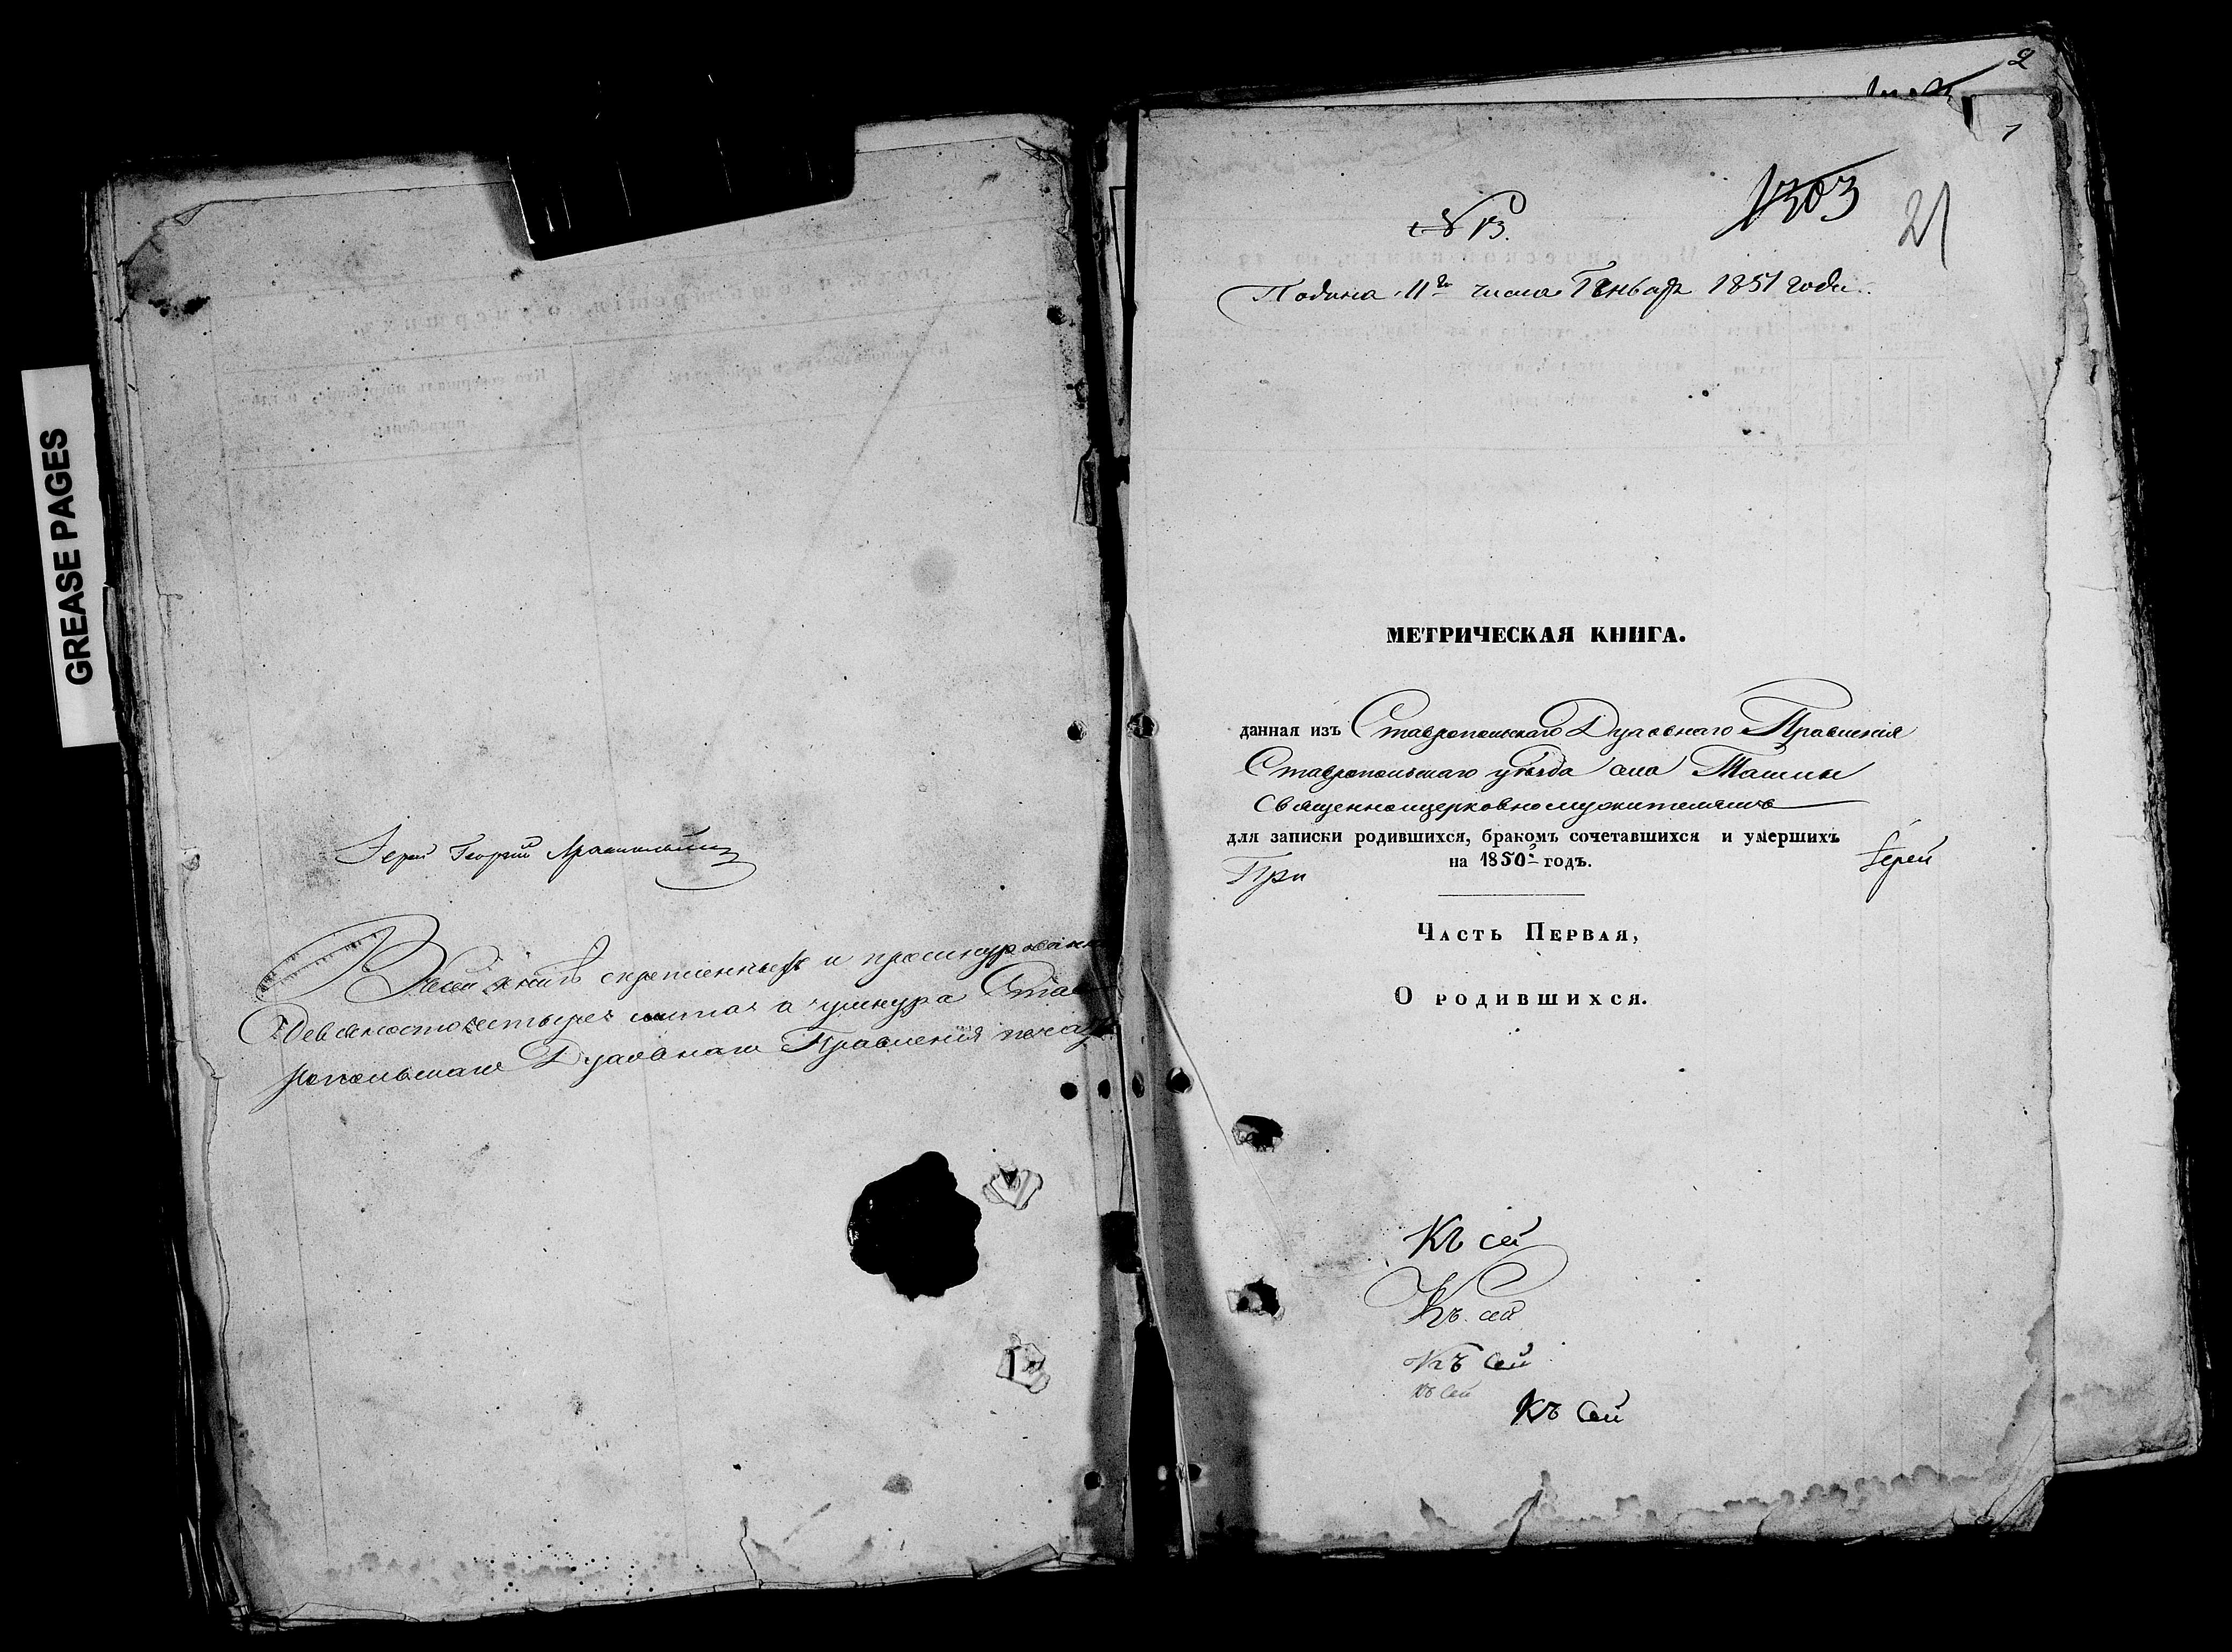 GREASE PAGES
Іерей Георгій
Въ сей книгѣ скрепленныхъ и прошнурованн
Девяносто четыре листа а у шнура Став
ропольскаго Духовнаго Правленія печать
2
1
1303
21
№ 13.
Подана 11го числа Генваря 1851 года.
МЕТРИЧЕСКАЯ КНИГА.
данная изъ Ставропольскаго Духовнаго Правленія
Ставропольскаго уѣзда села Ташлы
Священноцерковнослужителямъ
для записки родившихся, бракомъ сочетавшихся и умершихъ
на 1850й годъ.
При
Іерей
Часть Первая,
О родившихся.
Къ сей
Къ сей
Къ сей
Къ сей
Къ сей